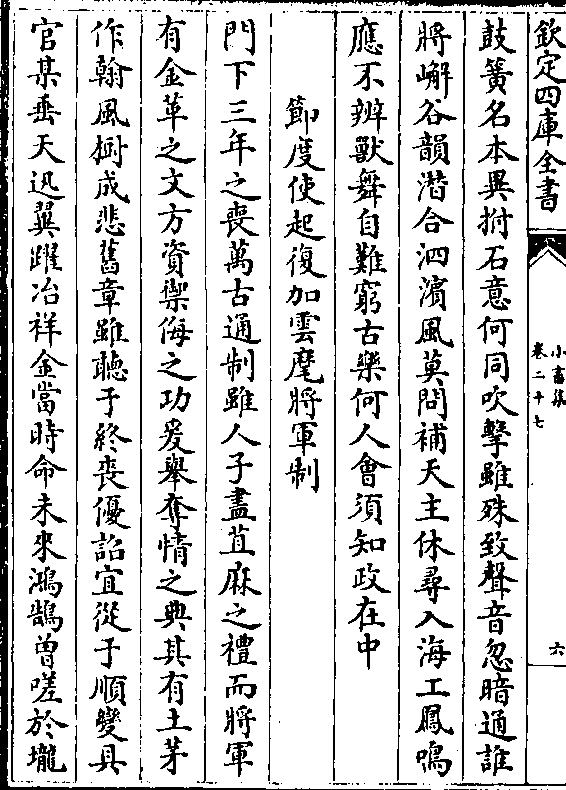 欽定四庫全書
小畜集
卷二十七
六
鼓簧名本異拊石意何同吹擊雖殊致聲音忽暗通誰
將嶰谷韻潜合泗濱風莫問補天主休尋入海工鳳鳴
應不辨獸舞自難窮古樂何人會須知政在中
節度使起復加雲麾將軍制
門下三年之喪萬古通制雖人子盡苴麻之禮而將軍
有金革之文方資禦侮之功爰舉奪情之典其有土茅
作翰風樹成悲舊章雖聴于終喪優詔宜從于順變具
官某垂天迅翼躍冶祥金當時命未來鴻鵠曾嗟於壠